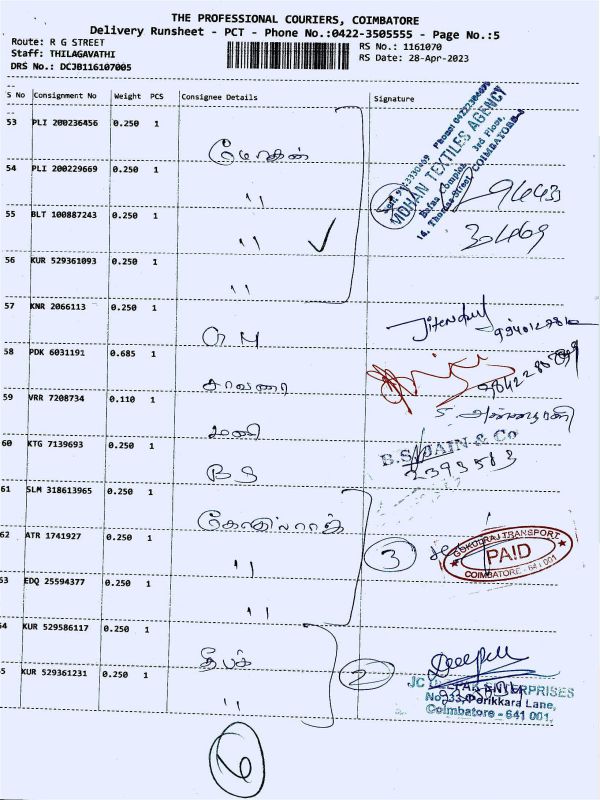 THE PROFESSIONAL COURIERS, COIMBATORE
Delivery Runsheet - PCT - Phone No.:0422-3505555 - Page No.:5
Route: R G STREET
Staff: THILAGAVATHI
DRS No.: DCJB116107005
RS No.: 1161070
RS Date: 28-Apr-2023
S No Consignment No Weight PCS Consignee Details Signature
53 PLI 200236456 0.250 1
மோகன்
MOHAN TEXTILES AGENCY
3rd Floor,
COIMBATORE-1
54 PLI 200229669 0.250 1
"
94433
55 BLT 100887243 0.250 1
" ✓
30469
56 KUR 529361093 0.250 1
"
57 KNR 2066113 0.250 1
G M
58 PDK 6031191 0.685 1
59 VRR 7208734 0.110 1
மணி
60 KTG 7139693 0.250 1
B S
B.S. JAIN & Co
2393583
61 SLM 318613965 0.250 1
62 ATR 1741927 0.250 1
"
3
GOKULRAJ TRANSPORT
PAID
COIMBATORE - 641 001
63 EDQ 25594377 0.250 1
"
64 KUR 529586117 0.250 1
தீபக்
Deepak
65 KUR 529361231 0.250 1
"
2
ENTERPRISES
No.33, Perikkara Lane,
Coimbatore - 641 001.
6